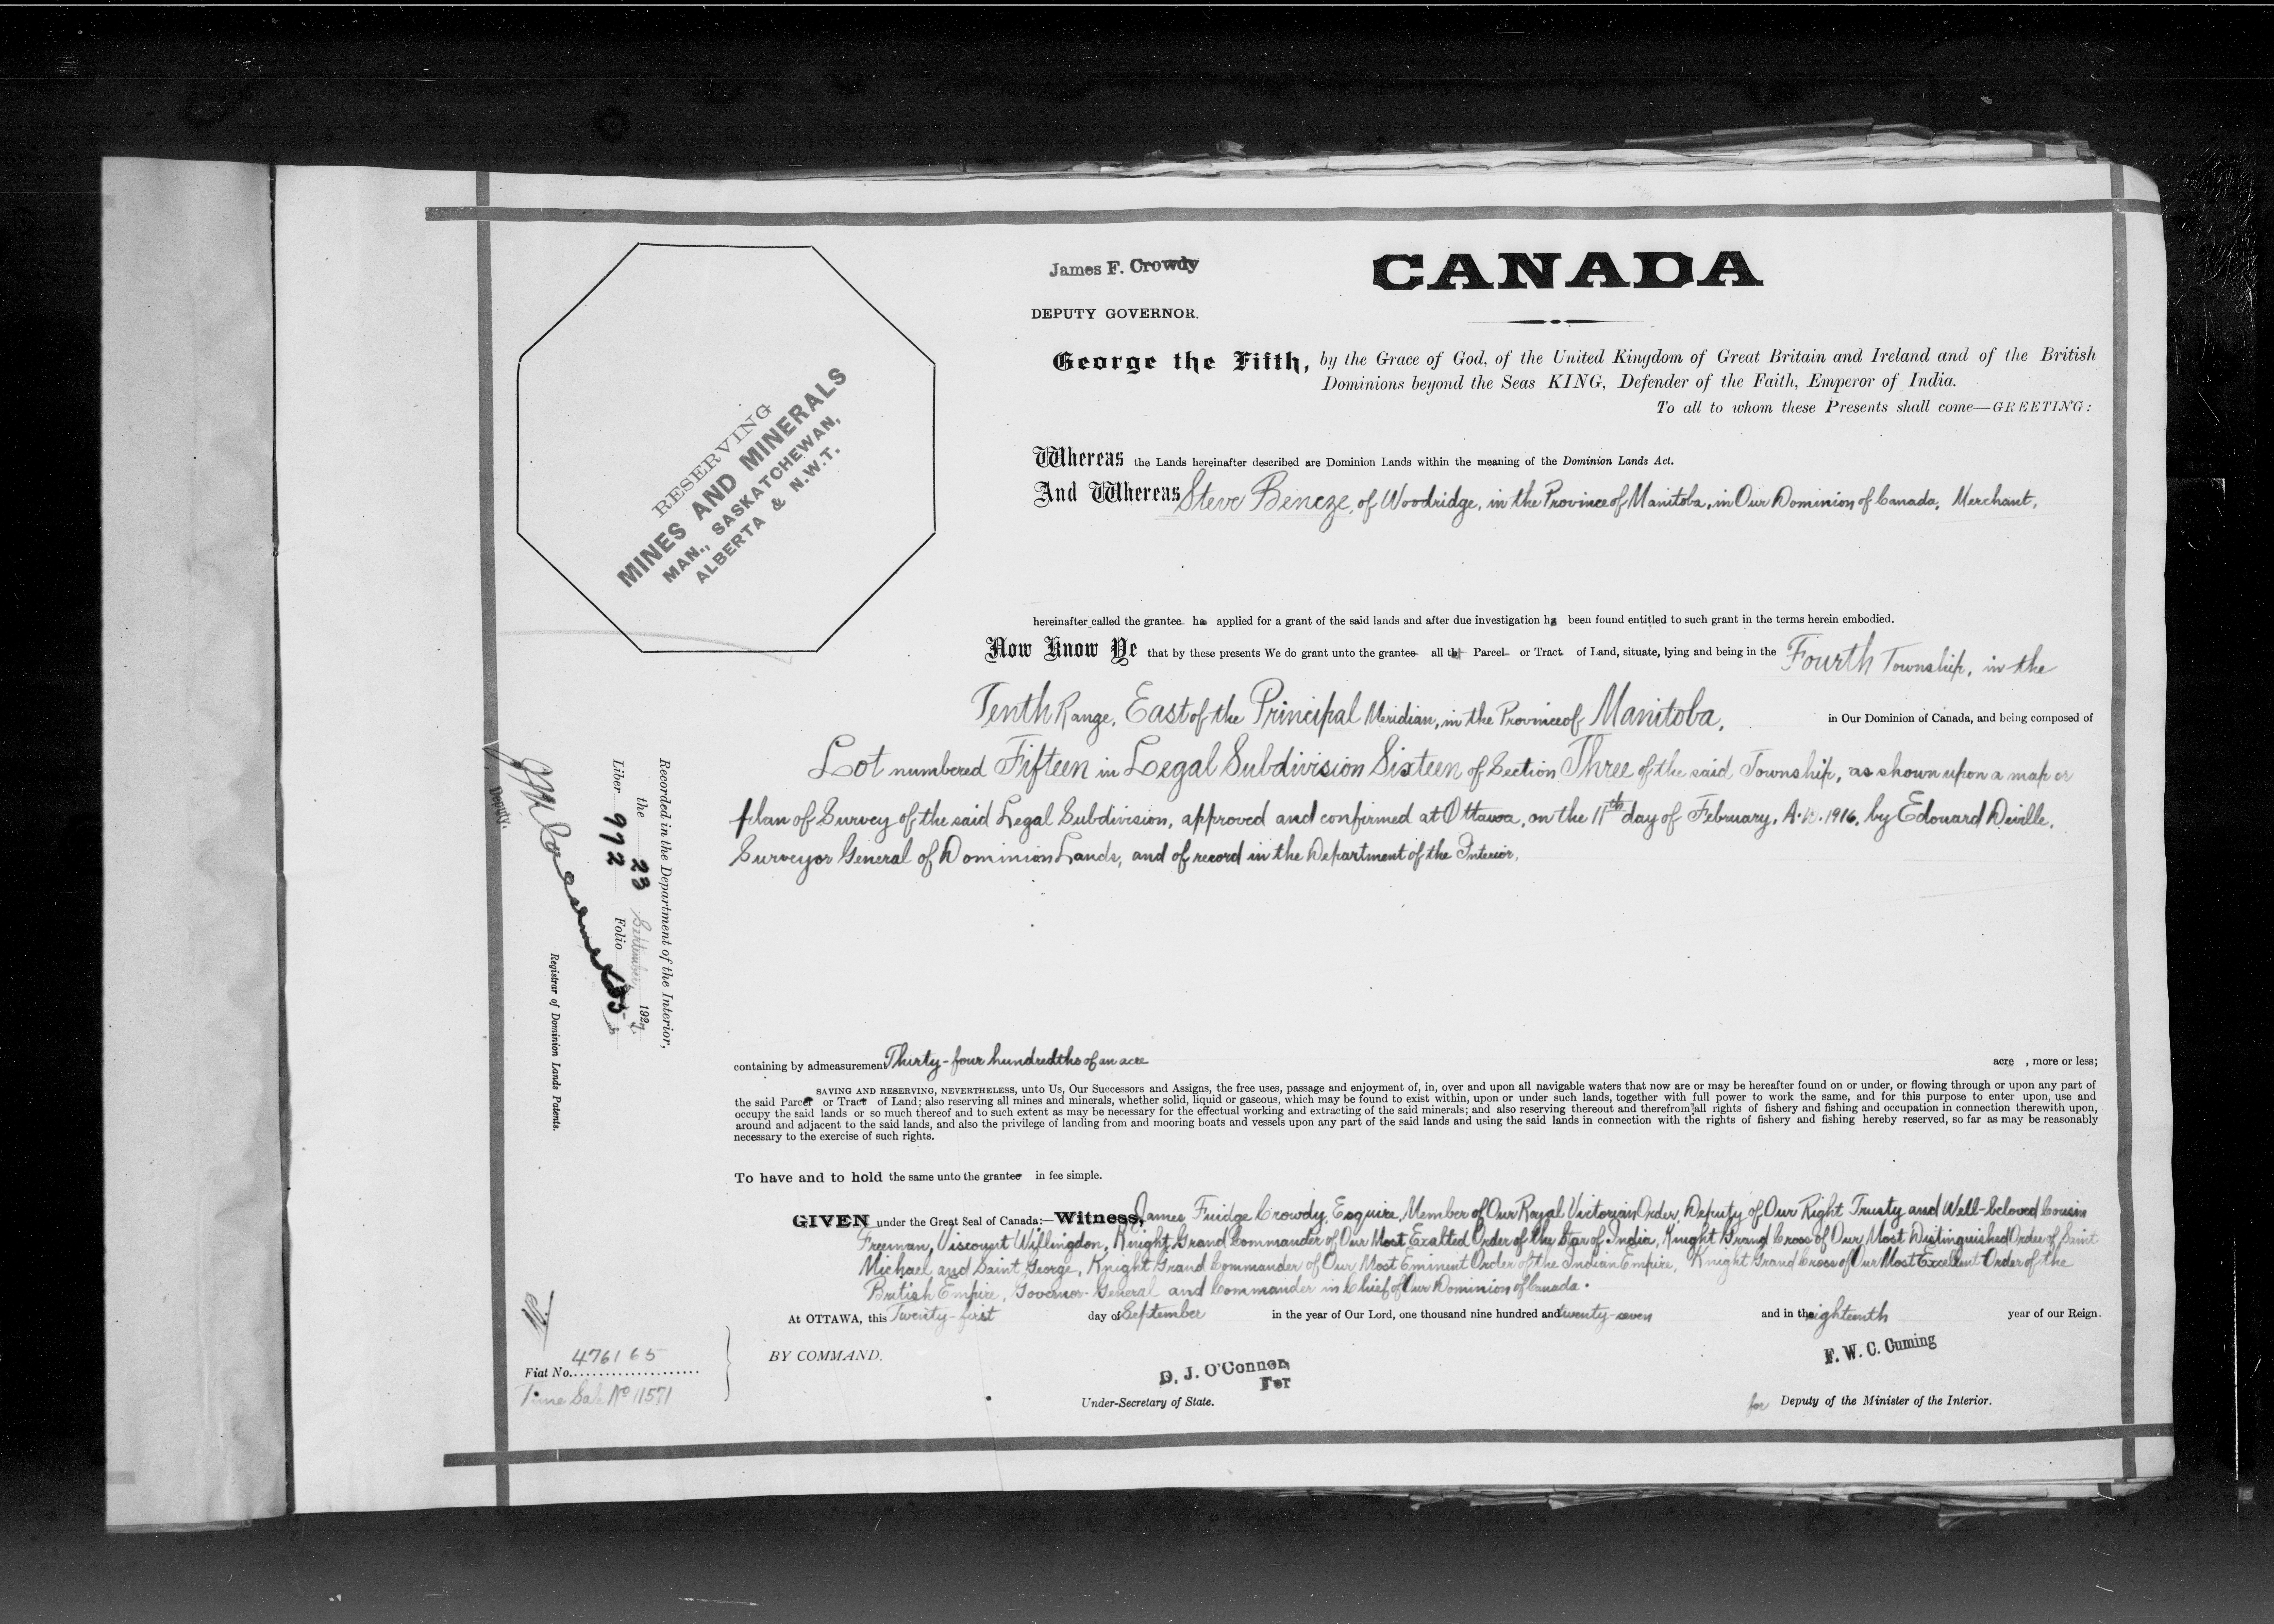 James F. Crowdy
DEPUTY GOVERNOR.
CANADA
George the Fifth, by the Grace of God, of the United Kingdom of Great Britain and Ireland and of the British
Dominions beyond the Seas KING, Defender of the Faith, Emperor of India.
To all to whom these Presents shall come—GREETING:
RESERVING
MINES AND MINERALS
MAN., SASKATCHEWAN,
ALBERTA & N.W.T.
Whereas the Lands hereinafter described are Dominion Lands within the meaning of the Dominion Lands Act.
And Whereas Steve Bencze, of Woodridge, in the Province of Manitoba, in Our Dominion of Canada, Merchant,
hereinafter called the grantee has applied for a grant of the said lands and after due investigation has been found entitled to such grant in the terms herein embodied.
Now Know Ye that by these presents We do grant unto the grantee all that Parcel or Tract of Land, situate, lying and being in the Fourth Township, in the
Tenth Range, East of the Principal Meridian, in the Province of Manitoba, in Our Dominion of Canada, and being composed of
Lot numbered Fifteen in Legal Subdivision Sixteen of Section Three of the said Township, as shown upon a map or
plan of Survey of the said Legal Subdivision, approved and confirmed at Ottawa, on the 11th day of February, A.D. 1916, by Edouard Deville,
Surveyor General of Dominion Lands, and of record in the Department of the Interior,
containing by admeasurement Thirty-four hundredths of an acre acre , more or less;
SAVING AND RESERVING, NEVERTHELESS, unto Us, Our Successors and Assigns, the free uses, passage and enjoyment of, in, over and upon all navigable waters that now are or may be hereafter found on or under, or flowing through or upon any part of
the said Parcel or Tract of Land; also reserving all mines and minerals, whether solid, liquid or gaseous, which may be found to exist within, upon or under such lands, together with full power to work the same, and for this purpose to enter upon, use and
occupy the said lands or so much thereof and to such extent as may be necessary for the effectual working and extracting of the said minerals; and also reserving thereout and therefrom all rights of fishery and fishing and occupation in connection therewith upon,
around and adjacent to the said lands, and also the privilege of landing from and mooring boats and vessels upon any part of the said lands and using the said lands in connection with the rights of fishery and fishing hereby reserved, so far as may be reasonably
necessary to the exercise of such rights.
To have and to hold the same unto the grantee in fee simple.
GIVEN under the Great Seal of Canada:—Witness, James Fuidge Crowdy, Esquire, Member of Our Royal Victorian Order, Deputy of Our Right Trusty and Well-beloved Cousin
Freeman, Viscount Willingdon, Knight Grand Commander of Our Most Exalted Order of the Star of India, Knight Grand Cross of Our Most Distinguished Order of Saint
Michael and Saint George, Knight Grand Commander of Our Most Eminent Order of the Indian Empire, Knight Grand Cross of Our Most Excellent Order of the
British Empire, Governor-General and Commander in Chief of Our Dominion of Canada.
At OTTAWA, this Twenty-first day of September in the year of Our Lord, one thousand nine hundred and twenty-seven and in the eighteenth year of our Reign.
BY COMMAND.
D. J. O'Connor
For
Under-Secretary of State.
F. W. C. Cuming
for Deputy of the Minister of the Interior.
Recorded in the Department of the Interior,
the 23 September, 1927.
Liber 972 Folio
Deputy.
Registrar of Dominion Lands Patents.
Fiat No. 476165
Time Sale No 11571